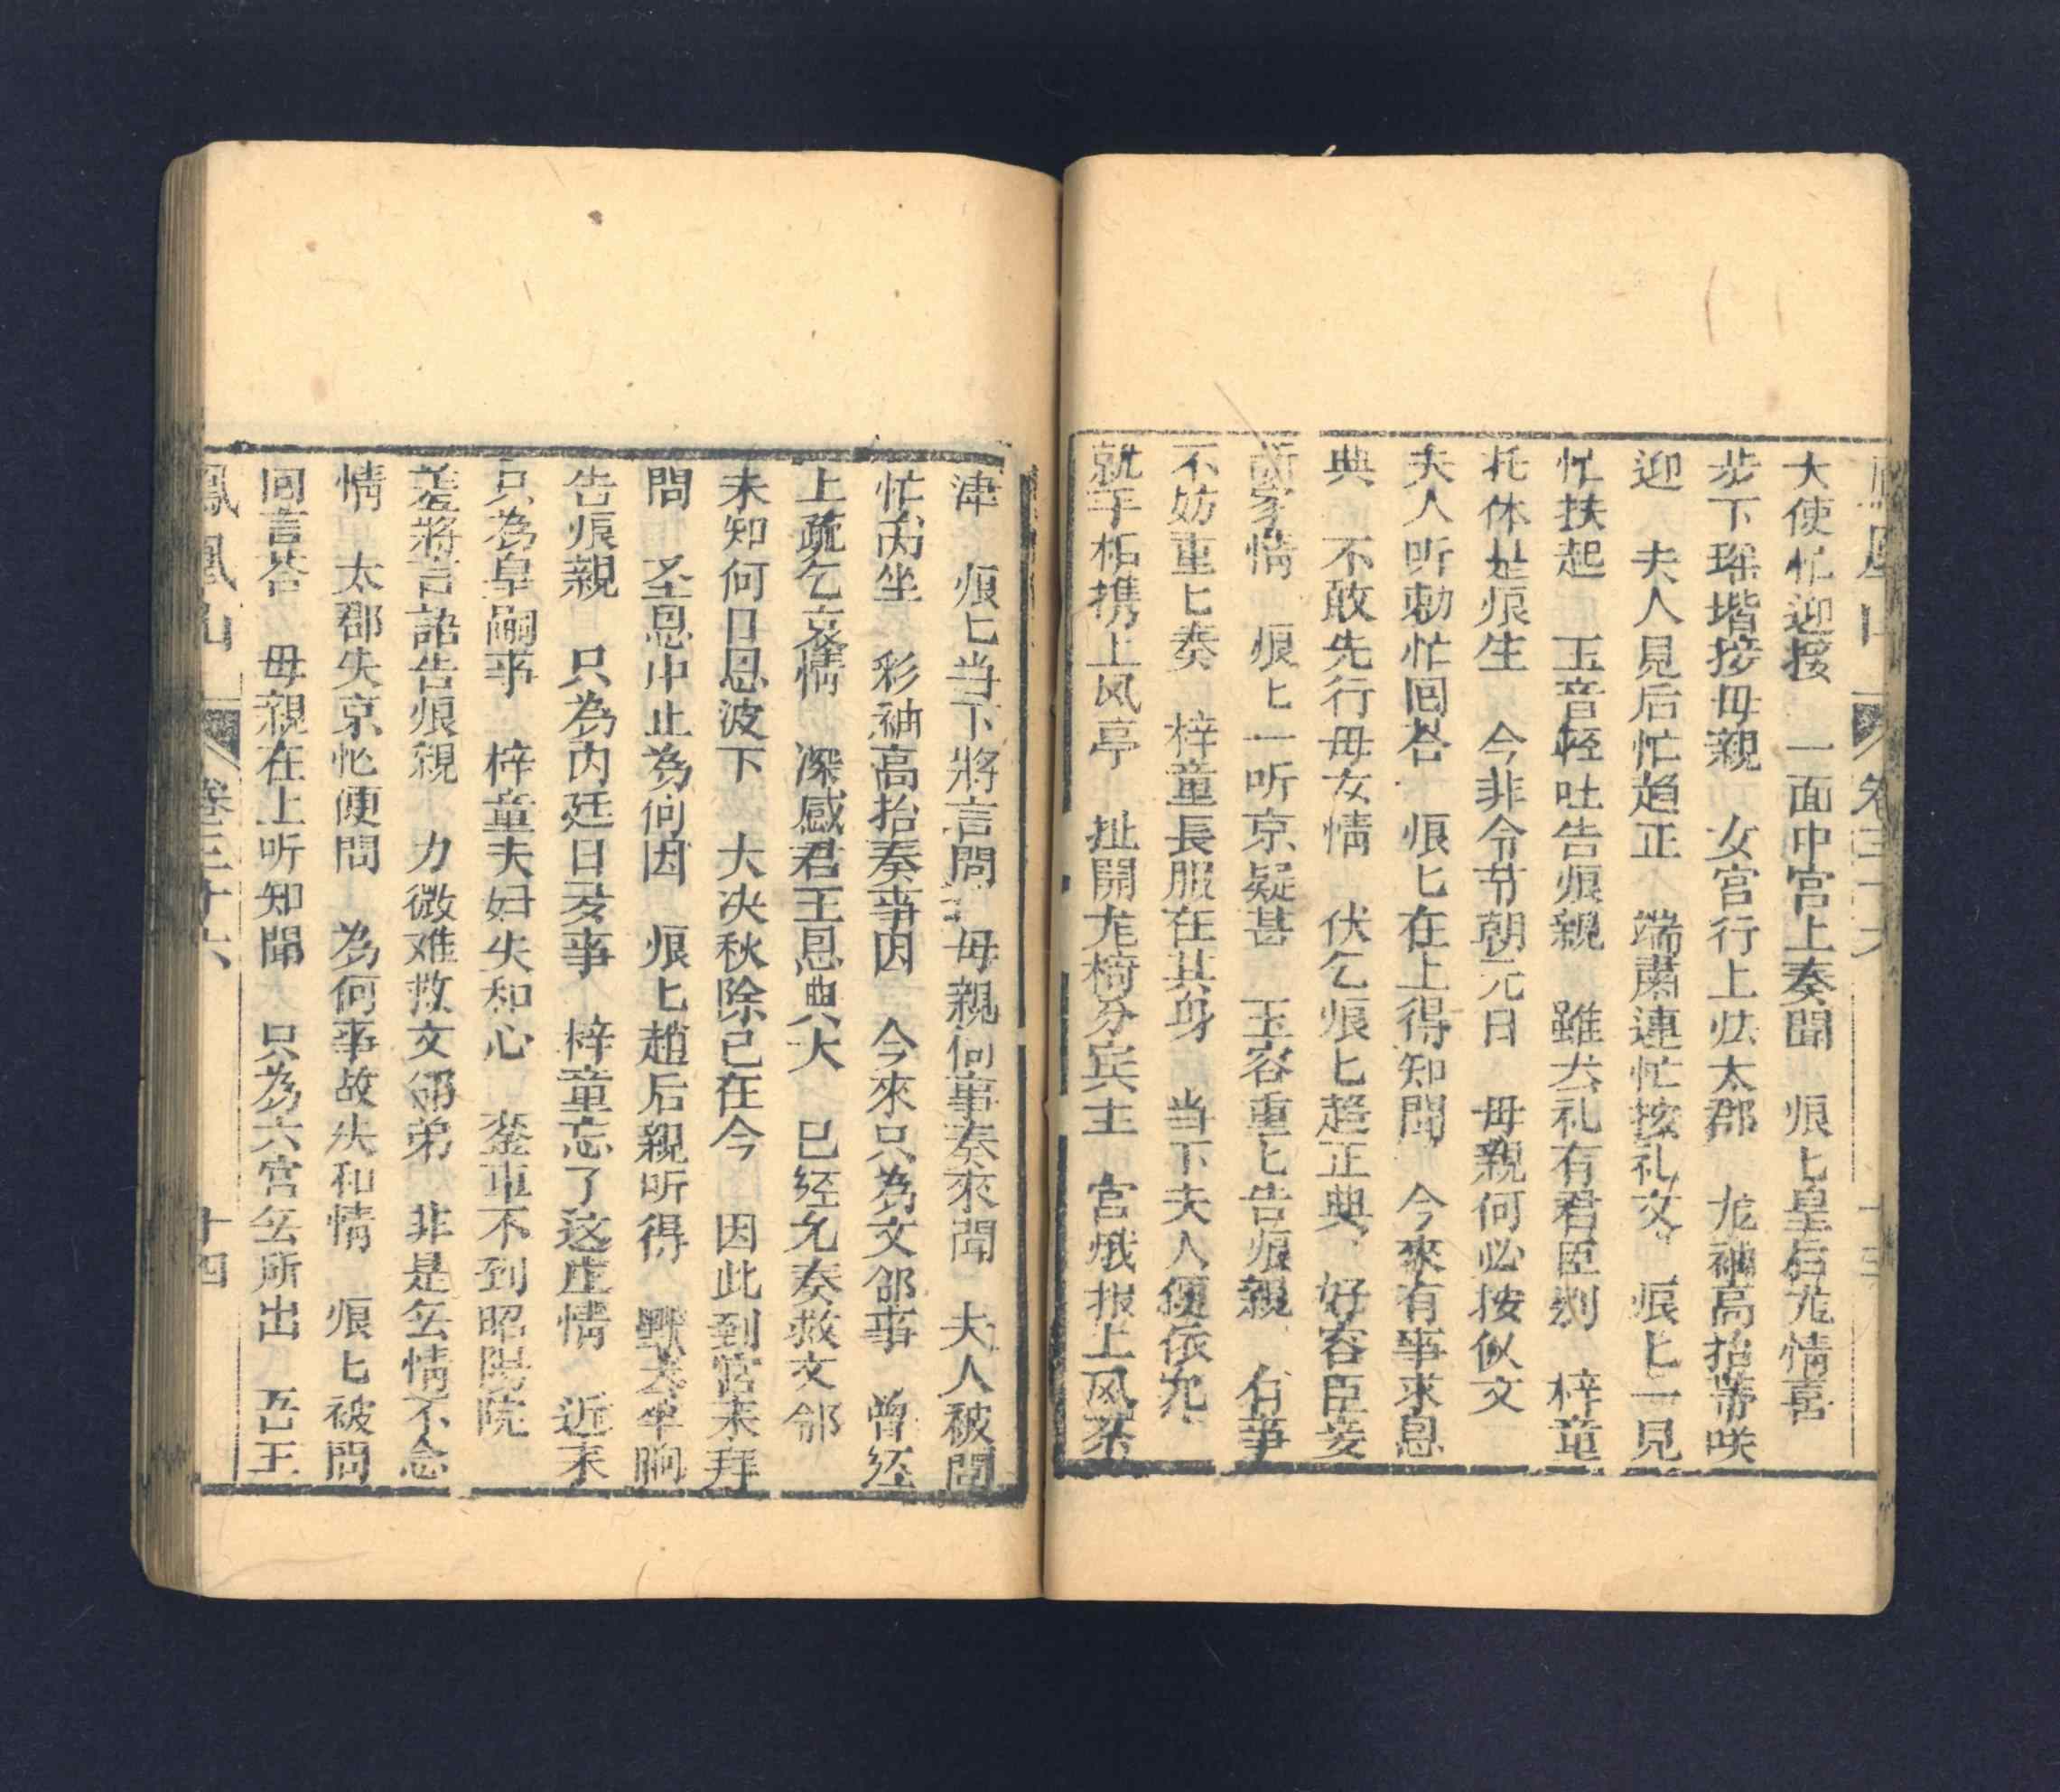 大使忙迎接　一面中宮上奏聞　痕匕皇后龙情喜
步下瑶堦接母親　女宮行上㳒太郡　龙袖高抬帶咲
迎　夫人見后忙趋正　端肅連忙按礼文　痕匕一見
忙扶起　玉音轻吐告痕親　雖然礼有君臣别　梓童
托休是痕生　今非令节朝元日　母親何必按似文
夫人听勅忙回荅　痕匕在上得知聞　今來有事求恩
典　不敢先行母女情　伏乞痕匕趋正典　好容臣妾
訴家情　痕匕一听京疑甚　玉容重匕告痕親　有事
不妨重匕奏　梓童長服在其身　当下夫人便依允
就手相携上风亭　扯開龙椅分宾主　宮娥报上风茶
津　痕匕当下將言問　母親何事奏來聞　夫人被問
忙丙坐　彩袖高抬奏事因　今來只為文郤事　曾经
上疏乞哀情　深感君王恩典大　已经允奏救文郤
未知何日恩波下　大决秋除已在今　因此到宮来拜
問　圣恩中止為何因　痕匕趙后親听得　默然半晌
告痕親　只為内廷日歹事　梓童忘了这庄情　近末
只為皇嗣事　梓童夫妇失和心　銮車不到昭陽院
羞將言語告痕親　力微难救文郤弟　非是厶情不念
情　太郡失京忙便問　為何事故失和情　痕匕被問
回言荅　母親在上听知聞　只為六宮厶所出　吾王
鳳凰山　卷三十六　十四